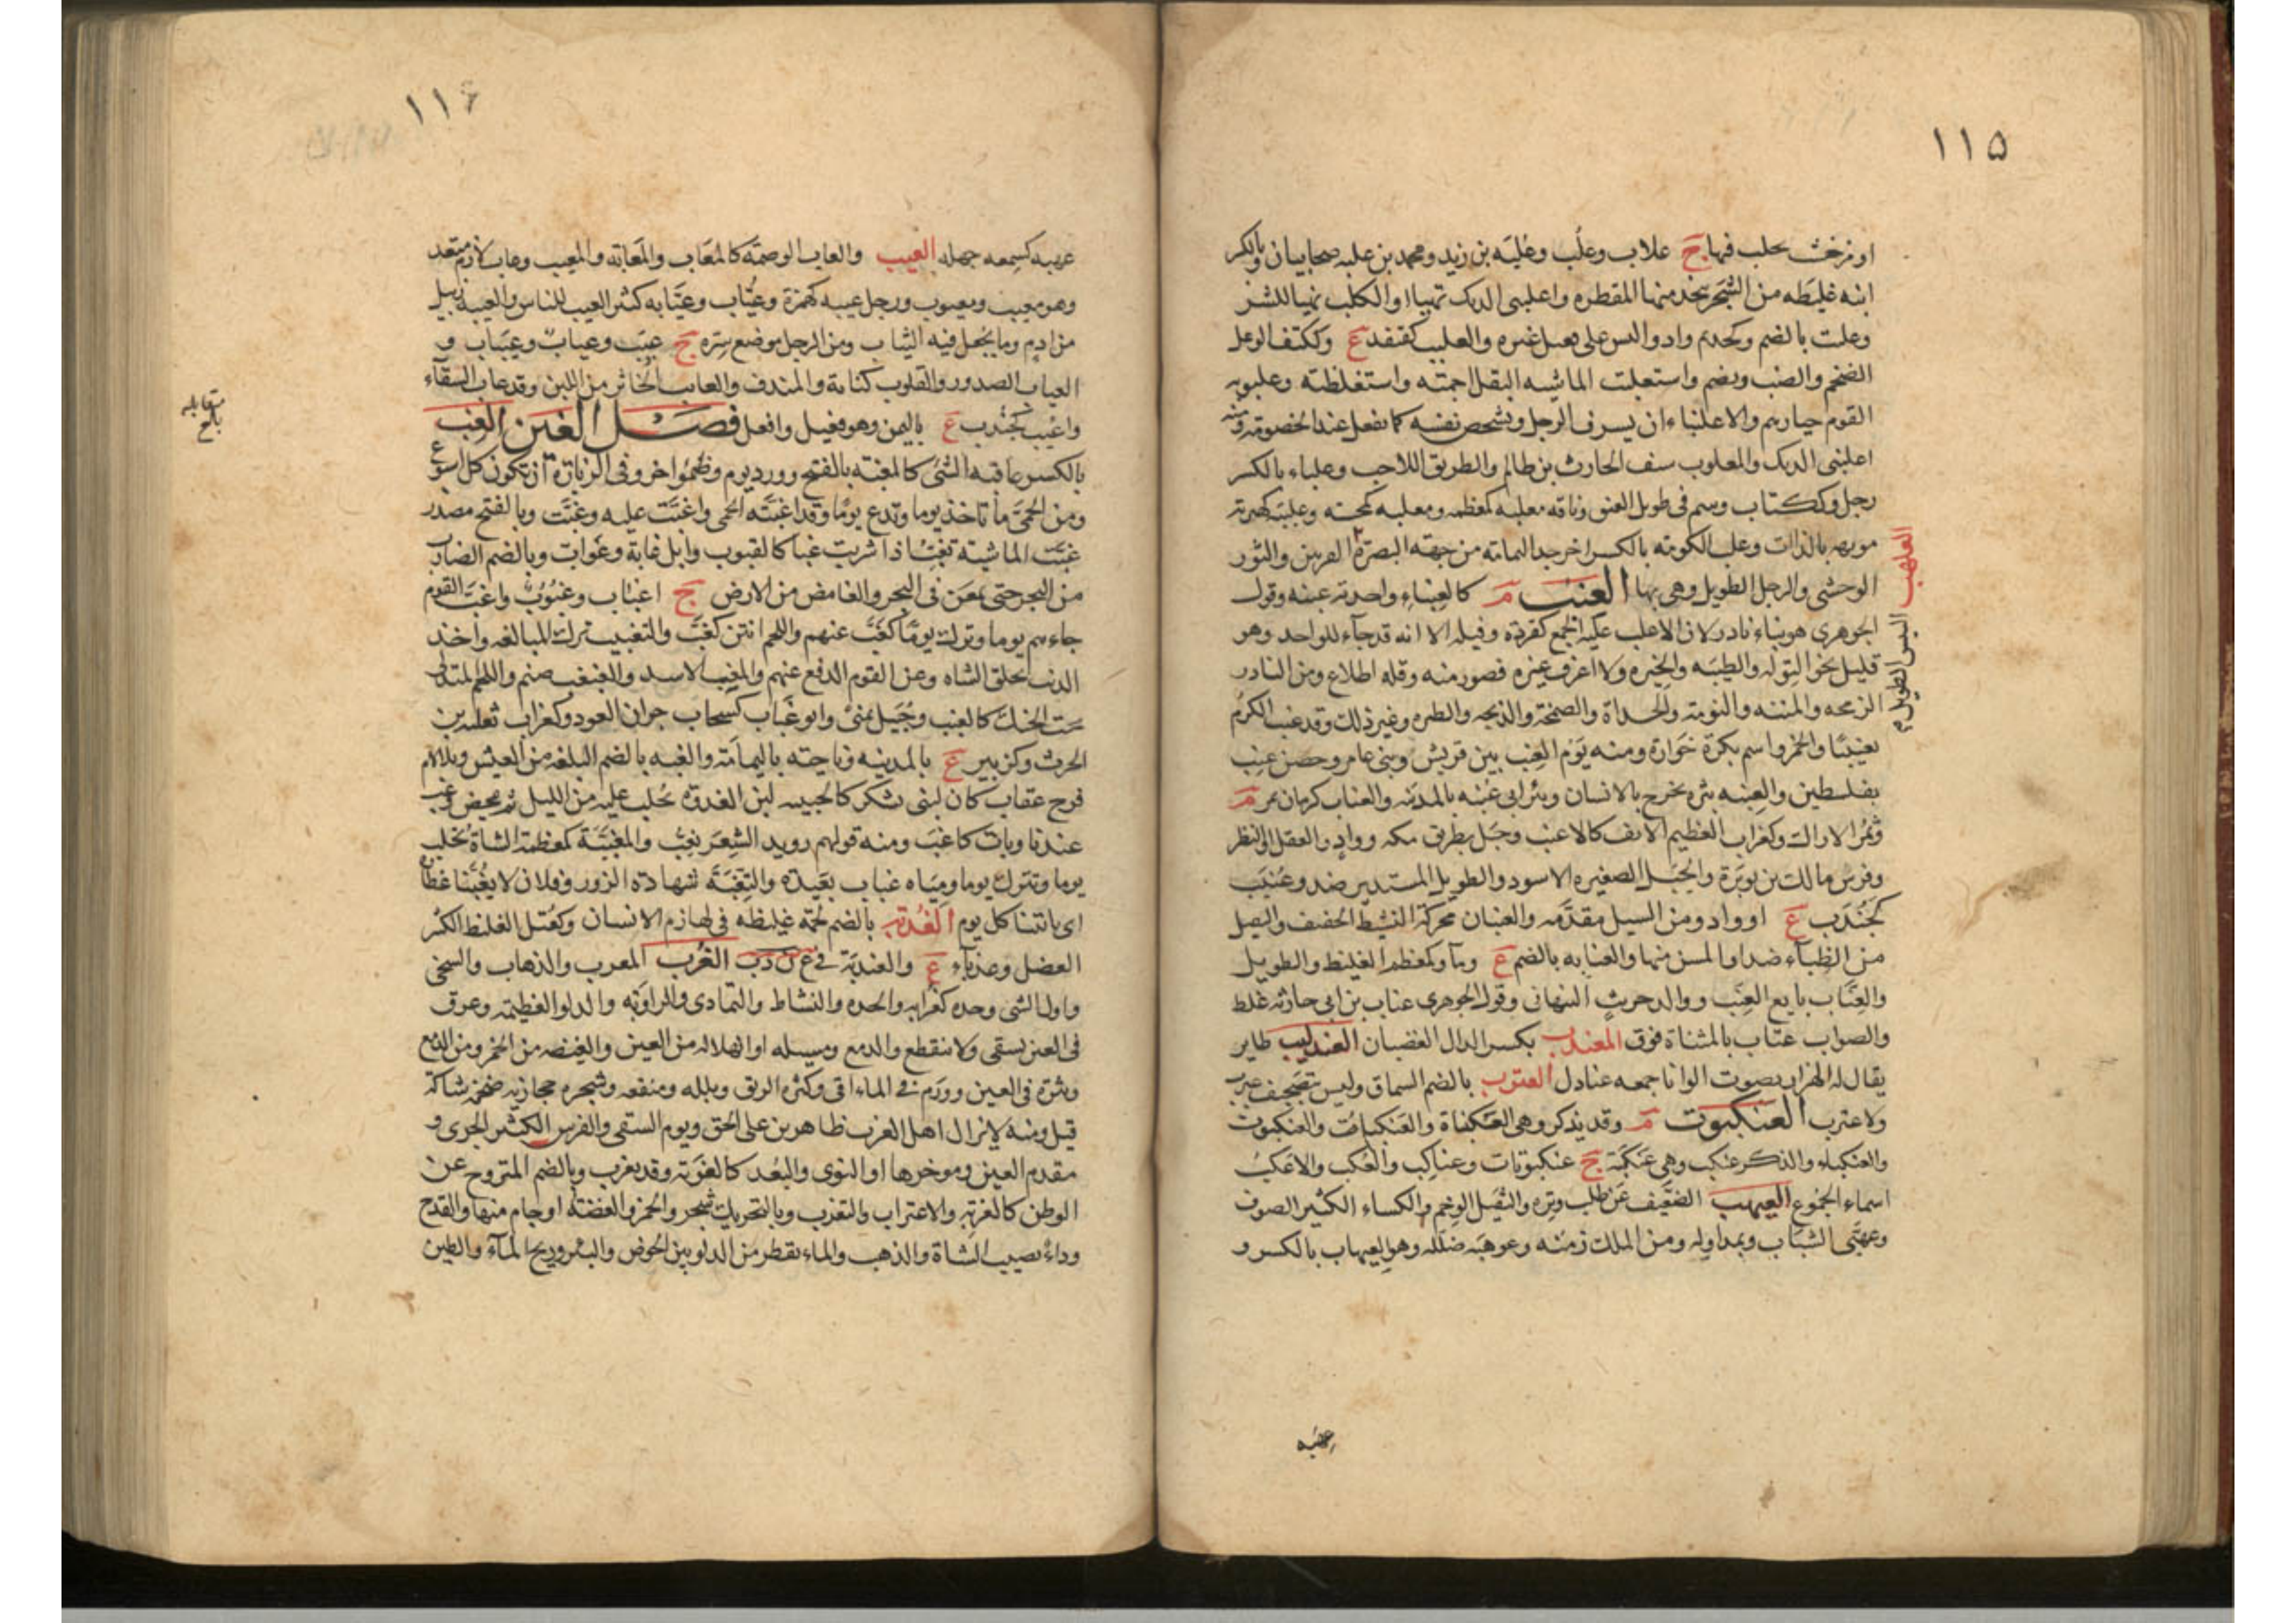 ١١٥
او من خشب يحلب فيها ج علاب وعلب وعلبة بن زيد ومحمد بن علبه صحابيان وبالكسر
ابنه غليظه من الشجر يتخذ منها المقطره واعلنبى الديك تهيا او الكلب تهيا للشر
بالضم وكحذيم واد وكقنفد ع وككتف الوعل
الضخم والضب ويضم واستعلبت الماشيه البقل اجمته واستغلظته وعلبوبه
القوم خيارهم والاعلنباء ان يسرف الرجل ويشخص نفسه كما يفعل عند الخصومه ومنه
اعلبنى الديك والمعلوب سيف الحارث بن ظالم والطريق اللاحب وعلباء بالكسر
رجل وككتاب وسم فى طول العنق وناقه معلبه كمعظمه
موبهه بالذات وعلب الكومه بالكسر اخر حد اليمامه من جهة البصرة
العلهب التيس الطويل القرنين والثور
الوحشى والرجل الطويل وهى بها العنب م كالعنباء واحدته عنبه وقول
الجوهرى هو بناء نادر لان الاغلب عليه الجمع كقردة وفيله الا انه قد جآء للواحد وهو
قليل نحو التوله والطيبه والخيره ولا اعرف غيره قصور منه وقله اطلاع ومن النادر
الزمحه والمننه والنومة والحداة والصمخة والذبحه والطيره وغير ذلك وقد عنب الكرم
تعنيبًا والخمر واسم بكرة خوارة ومنه يوم العنب بين قريش وبنى عامر وحصن عنب
بفلسطين والعنبه بثره تخرج بالانسان وبئر ابى عنبه بالمدينه والعناب كرمان ثمر م
وثمر الاراك وكغراب العظيم الانف كالاعنب وجبل بطريق مكه وواد والعفل او البظر
وفرس مالك بن نويرة والجبل الصغير الاسود والطويل المستدير ضد وعنبب
كجندب ع او واد ومن السيل مقدمه والعنبان محركة النشيط الخفيف والثقيل
من الظباء ضد او المسن منها والعنابه بالضم ع وماء وكمعظم الغليظ والطويل
والعناب بايع العنب ووالد حريث النبهانى وقول الجوهرى عناب بن ابى حارثه غلط
والصواب عتاب بالمثناة فوق المعندب بكسر الدال الغضبان العندليب طاير
يقال له الهزار يصوت الوانا جمعه عنادل العنزب بالضم السماق وليس بتصحيف عبرب
ولا عترب العنكبوت م وقد يذكر وهى العنكباة والعكنباة والعنكبوه
والعنكباء والذكر عنكب وهى عنكبة ج عنكبوتات وعناكب والعكب والاعكب
اسماء الجموع العيهب الضعيف عن طلب وتره والثقيل الوخم والكساء الكثير الصوف
وعهبى الشباب ويمد اوله ومن الملك زمنه وعوهبه ضلله وهو العيهاب بالكسر و
عهبه
١١٦
عهبه كسمعه جهله العيب والعاب الوصمة كالمعاب والمعابة والمعيب وعاب لازم متعد
وهو معيب ومعيوب ورجل عيبه كهمزة وعياب وعيابه كثير العيب للناس والعيبه زبيل
من ادم وما يجعل فيه الثياب ومن الرجل موضع سره ج عيب وعياب وعيبات و
العياب الصدور والقلوب كناية والمندف والعايب الخاثر من اللبن وقد عاب السقاء
واعيب كجندب ع باليمن وهو فعيل او افعل فصل الغين الغب
بالكسر عاقبة الشئ كالمغبة بالفتح وورد يوم وظمؤ اخر وفى الزيارة ان تكون كل اسبوع
ومن الحمى ما تاخذ يوما وتدع يوما وقد اغبته الحمى واغبت عليه وغبت وبالفتح مصدر
غبت الماشية تغب اذا شربت غبا كالغبوب وابل غابة وغواب وبالضم الضارب
من البحر حتى يمعن فى البحر والغامض من الارض ج اغباب وغبوب واغب القوم
جاءهم يوما وترك يوما كغب عنهم واللحم انتن كغب والتغبيب ترك المبالغه واخذ
الذئب بحلق الشاه وعن القوم الدفع عنهم والمغبب الاسد والغبغب صنم واللحم المتدلى
تحت الحنك كالغبب وجبيل بمنى وابو غباب كسحاب جران العود وكغراب ثعلبه بن
الحرث وكزبير ع بالمدينه وناحيه باليمامة والغبه بالضم البلغة من العيش وبلا لام
فرخ عقاب كان لبنى يشكر كالحبيبه لبن الغدوة يحلب عليه من الليل ثم يمخض وغب
عندنا وبات كاغب ومنه قولهم رويد الشعر يغب والمغببة كمعظمة الشاة تحلب
يوما وتترك يوما ومياه غباب بعيدة والتغبة شهادة الزور وفلان لا يغبنا عطاؤه
اى ياتينا كل يوم الغدبه بالضم لحمة غليظه فى لهازم الانسان وكعتل الغليظ الكثير
العضل وغدباء ع والغندبة فى غ ن د ب الغرب المغرب والذهاب والتنحى
واول الشى وحده كغرابه والحده والنشاط والتمادى والراوية والدلو العظيمه وعرق
فى العين يسقى ولا ينقطع والدمع ومسيله او انهلاله من العين والفيضه من الخمر ومن الدمع
وبثرة فى العين وورم فى الماقى وكثرة الريق وبلله ومنقعه وشجره حجازيه ضخمة شاكة
قيل ومنه لا يزال اهل الغرب ظاهرين على الحق ويوم السقى والفرس الكثير الجرى و
مقدم العين وموخرها او النوى والبعد كالغربه وقد تغرب وبالضم النزوح عن
الوطن كالغربه والاغتراب والتغرب وبالتحريك شجر والخمر والفضة او جام منها والقدح
وداء يصيب الشاة والذهب والماء يقطر من الدلو بين الحوض والبئر وريح الماء والطين
بلغ مقابله